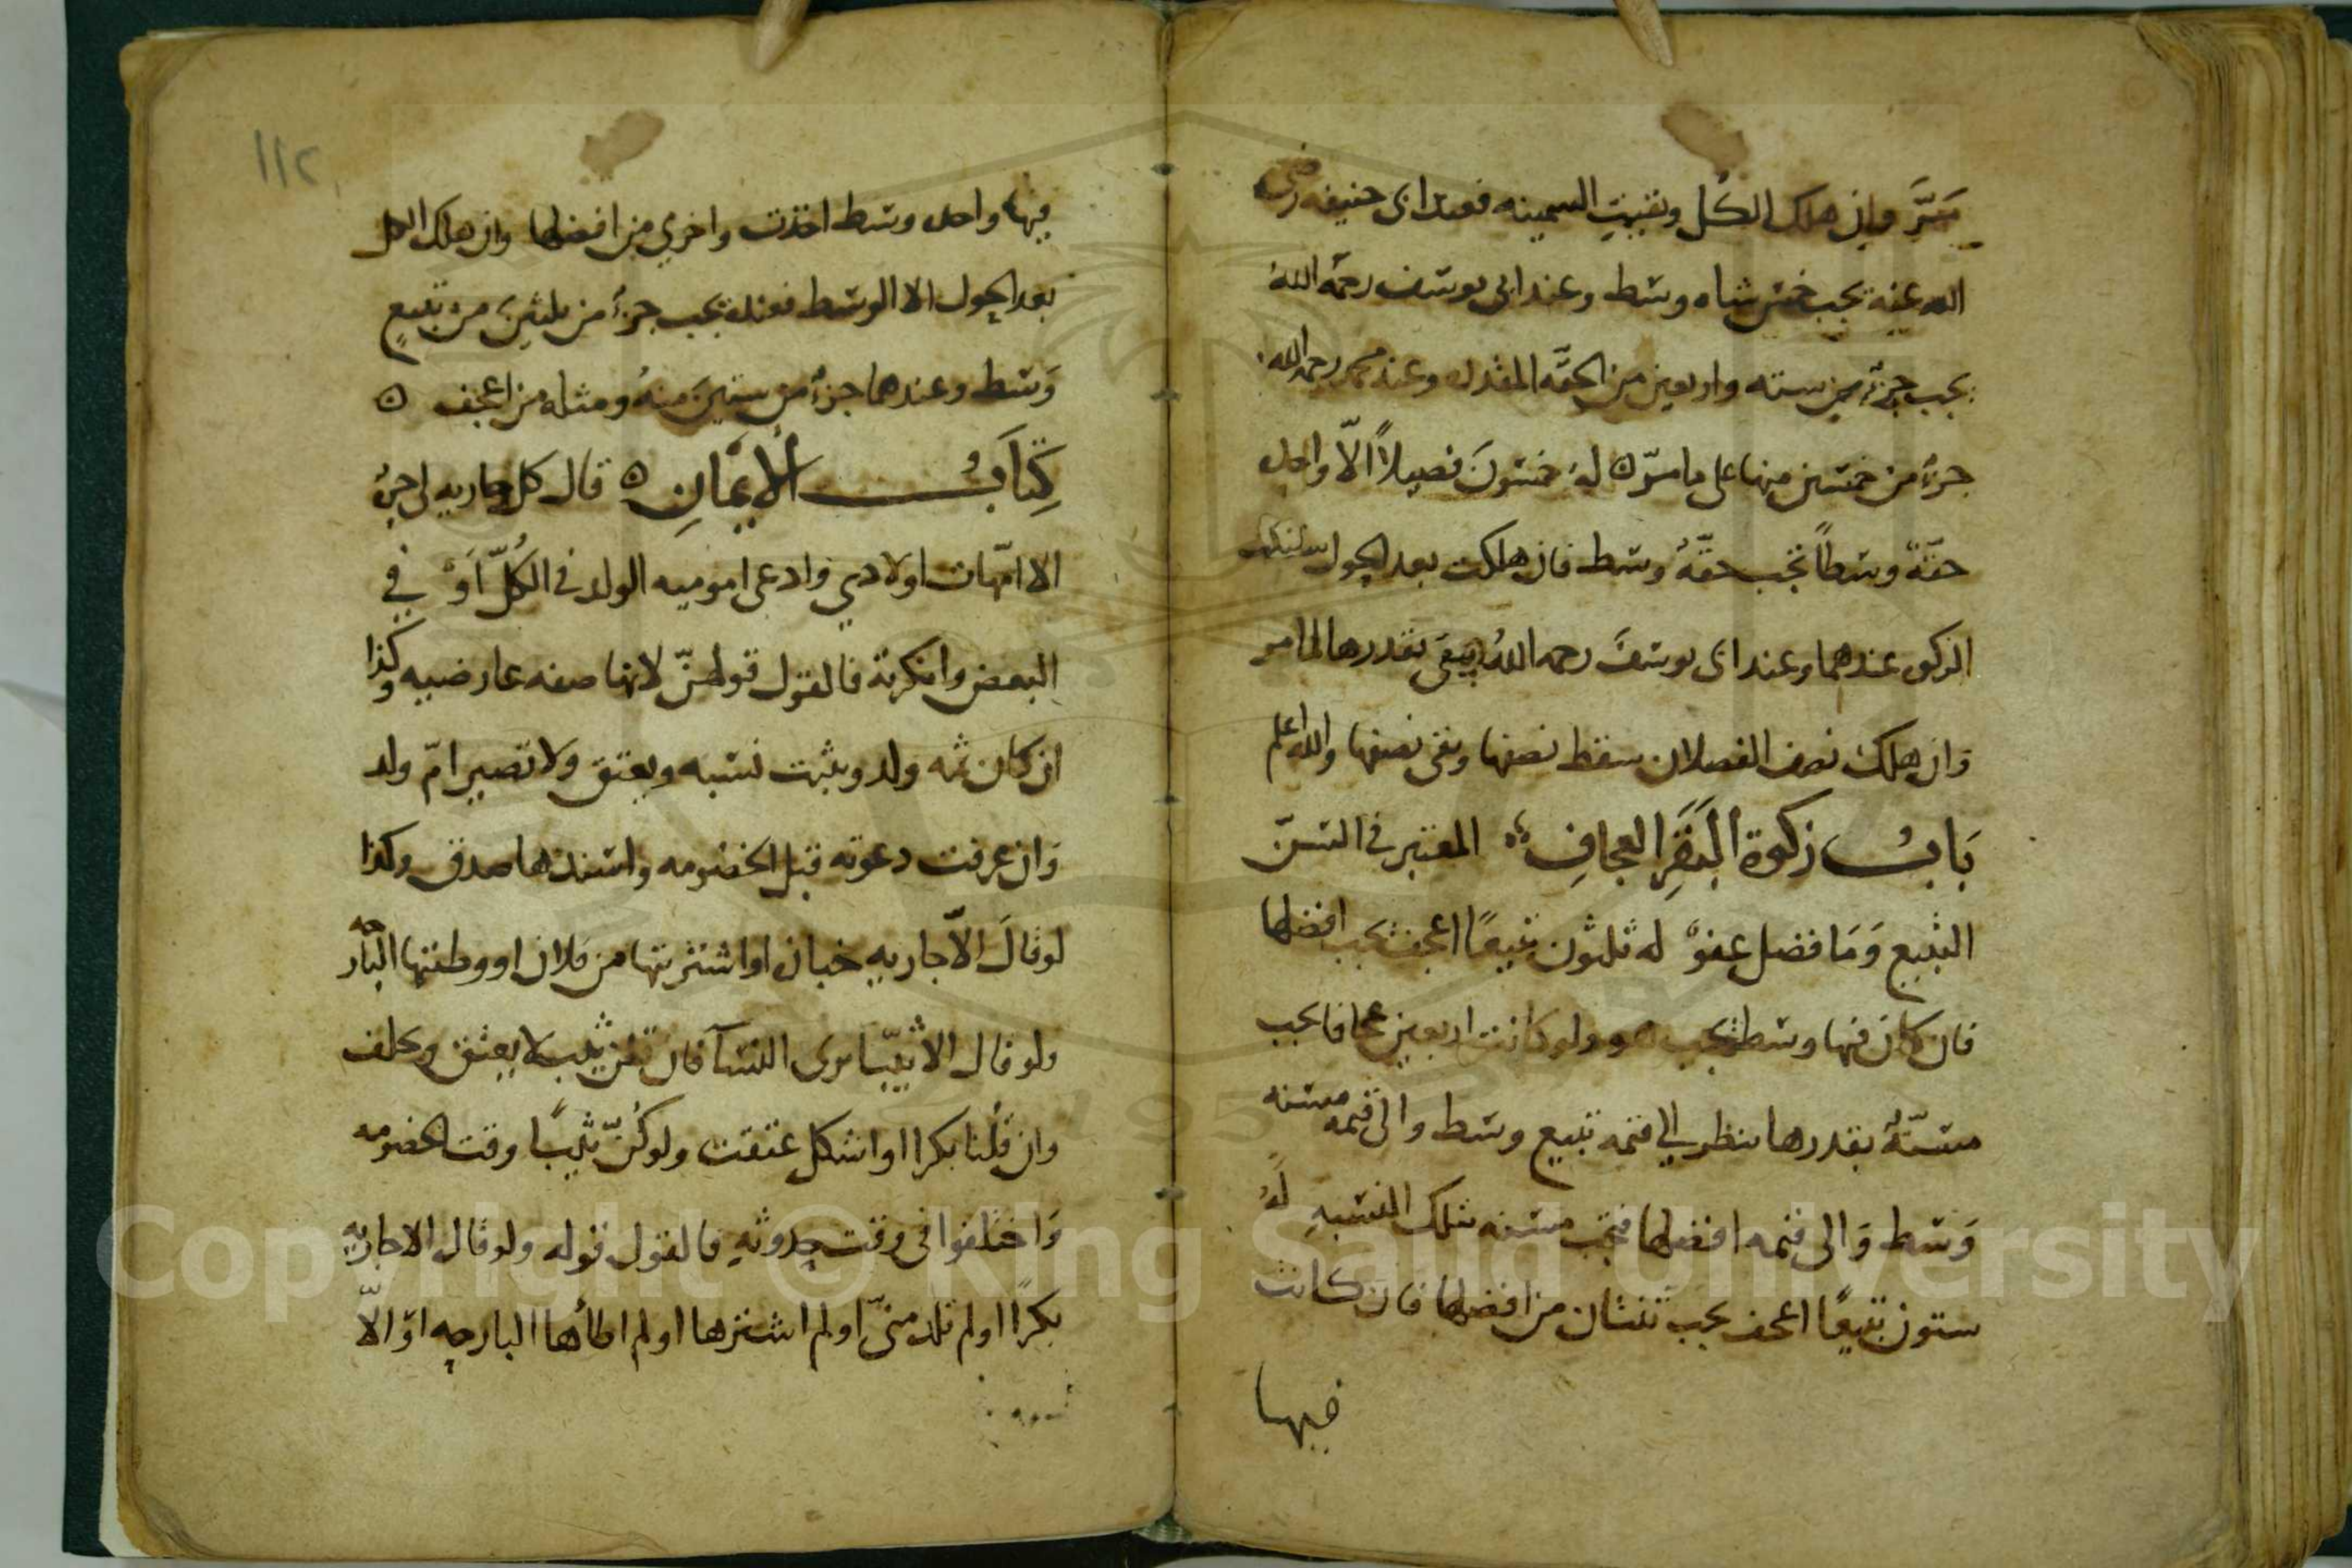 مَرَّ وان هلك الكُل وبقيت السمينه فعند ابى حنيفه رضى
الله عنه تجب خمس شاه وسط وعند ابى يوسف رحمَه اللهُ
يجب جزءٌ من سته واربعين من الحقَّه المقدله وعند محمد رحمه الله
جزءٌ من خمسين منها على ما مرّ ه لهُ خمسُونَ فصيلاً الّا واحده
حقّةً وسَطاً تجب حقّةٌ وسَط فان هلكت بعد الحول
الزكوه عندهما وعند ابى يوسفَ رحمه اللهُ يبقى بقدرها كما مر
وَان هلك نصف الفصلان سقط نصفها وبقى نصفها والله اعلم
بَابُ زكوة البَقَرِ العجافِ المعتبر فى السّنّ
التبيع وَمَا فضل عفوٌ له ثلثون تبيعًا اعجف تجب افضلها
فان كان فيها وسط تجب هو ولو كانت اربعين عجافا يجب
مسنّةٌ بقدرها ينظر الى قيمه تبيع وسط والى قيمه مسنه
وَسَط وَالى قيمه افضلها فتجب مسنه بتلك النسبهِ لهُ
ستون تبيعًا اعجف يجب تبيعان من افضلها فان كانت
فيها
١١٢
فيها واحده وسَط اخذت واخري من افضلها وان هلك الكل
بعد الحول الا الوسَط فعنده تجب جزءٌ من ثلثينَ من تبيعٍ
وَسَط وعندهما جزءٌ من ستينَ منهُ ومثله من اعجف ه
كِتَابُ الأيمَانِ ه قال كل جاريه لى حرةٌ
الا امّهات اولادي وادعى اموميه الولد فى الكُلّ اَوْ في
البعض وانكرنه فالقول قولهنّ لانها صفه عارضيه وكذا
ان كان ثمه ولد ويثبت نسَبه ويعتق وَلا تصير امّ ولد
وَان عرفت دعوته قبل الخصُومه واسندها صدق وكذا
لو قالَ الاّ جاريه خبازه او اشتريتها من فلان او وطئتها البارحه
ولو قال الا ثيّبا يرى النسَآ فان قلن ثيب لا يعتق ويحلف
وان قُلنا بكرا او اشكل عتقت ولو كُنّ ثيبًا وقت الخصومه
وَاختلفوا فى وقت حدوثهِ فالقول قوله ولو قال الا جاريه
بكرًا او لم تلد منىّ او لم اشترها او لم اطأها البارحه اوْ الاّ